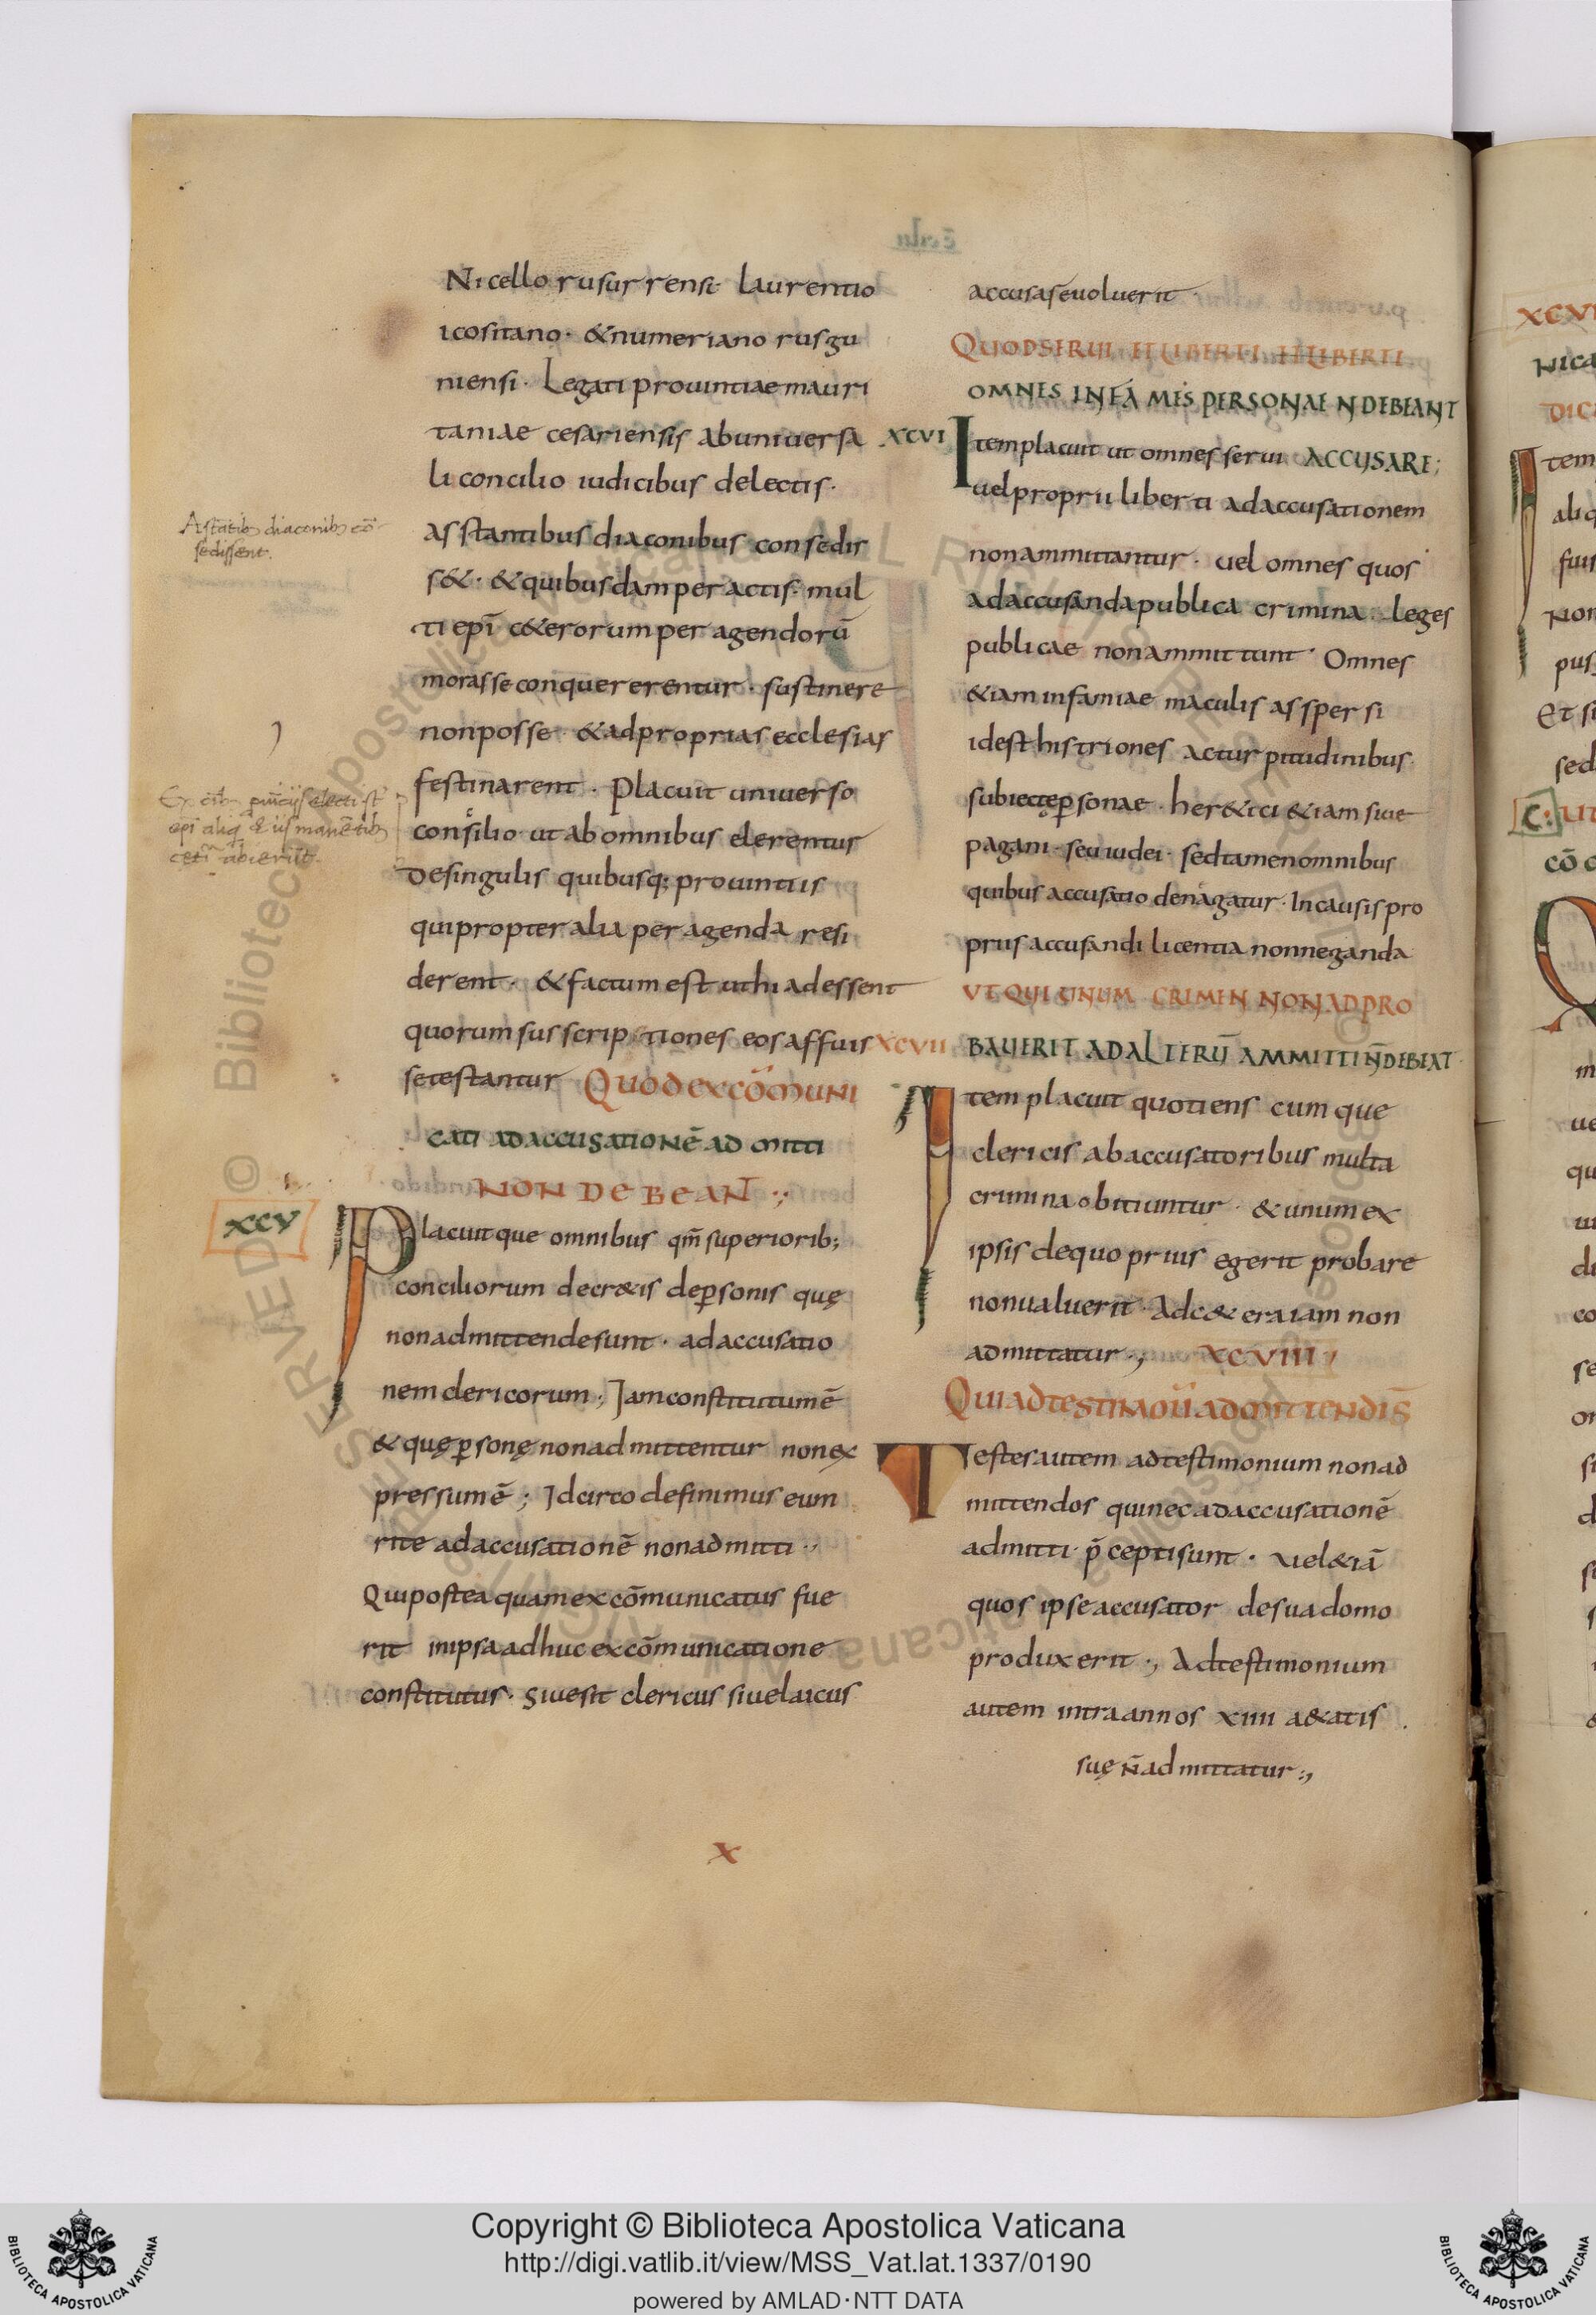 Nicello rusurrensi laurentio
icositano· &numeriano rusgu
niensi· Legati prouintiae mauri
taniae cesariensis abuniuersa
li concilio iudicibus delectis·
asstantibus diaconibus consedis
s&· &quibusdam peractis· mul
ti epi̅ c&erorum per agendorū
morasse conquererentur· sustinere
nonposse &adproprias ecclesias
festinarent· placuit uniuerso
consilio ut ab omnibus elerentur
desingulis quibusq; prouintiis
qui propter alia per agenda resi
derent· &factum est uthi adessent
quorum susscriptiones eos affuis
setestantur Quod excōmuni
cati adaccusationē ad mitti
NON DEBEANT·;
XCV
Placuitque omnibus qm̄ superiorib;
conciliorum decr&is dep̲sonis quę
nonadmittendesunt· adaccusatio
nem clericorum; Iamconstitutumē
&quęp̲sonę nonadmittentur nonex
pressumē; Idcirco definimus eum
rite adaccusationē nonadmitti·,
Qui postea quam excōmunicatus fue
rit inipsa adhuc excōmunicatione
constitutus· siuesit clericus siuelaicus
accusaseuoluerit
QUODSERUI ET LIBERTI ET LIBERTI
OMNES INFAMES PERSONAE N̄DEBEANT
XCVI
Itemplacuit ut omnes serui ACCUSARE;
uelproprii liberti adaccusationem
nonammittantur· uel omnes quos
adaccusandapublica crimina leges
publicae nonammittunt· Omnes
&iam infamiae maculis assper si
idest histriones actur pitudinibus
subiectęp̲sonae· her&ici &iam siue
pagani· seuiudei· sedtamenomnibus
quibus accusatio denagatur· Incausis pro
priis accusandi licentia nonneganda
UT QUI UNUM CRIMEN NON ADPRO
XCVII
BAUERIT AD ALTERŪ AMMITTI N̄DEBEAT
Item placuit quotiens cum que
clericis abaccusatoribus multa
crimina obitiuntur· &unumex
ipsis dequo prius egerit probare
nonualuerit· Adc&era iam non
admittatur·, XCVIII
Qui adtestimaoū admittendis̄
Testesautem adtestimonium nonad
mittendos quinec adaccusationē
admitti p̄ceptisunt· uel&iā
quos ipseaccusator desuadomo
produxerit·, Adtestimonium
autem intraannos xiiii a&atis·
suę n̄ admittatur:,
X
Copyright © Biblioteca Apostolica Vaticana
http://digi.vatlib.it/view/MSS_Vat.lat.1337/0190
powered by AMLAD·NTT DATA
BIBLIOTECA APOSTOLICA VATICANA
BIBLIOTECA APOSTOLICA VATICANA